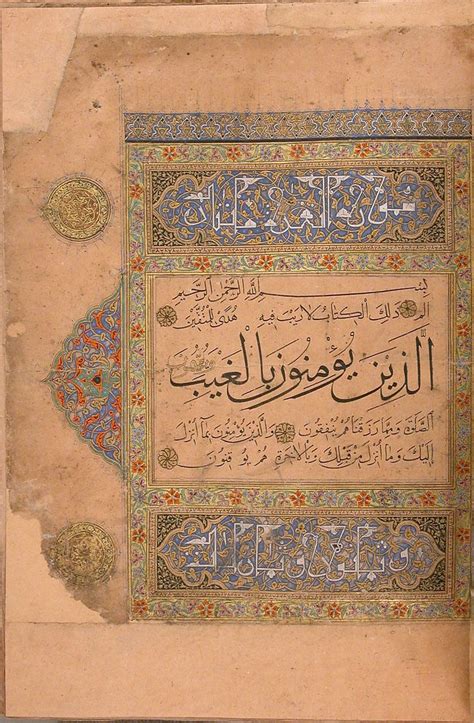 سورة البقرة
بسم الله الرحمن الرحيم
الم ذلك الكتاب لا ريب فيه هدى للمتقين
الذين يؤمنون بالغيب ويقيمون
الصلوة ومما رزقناهم ينفقون والذين يؤمنون بما انزل
اليك وما انزل من قبلك وبالاخرة هم يوقنون